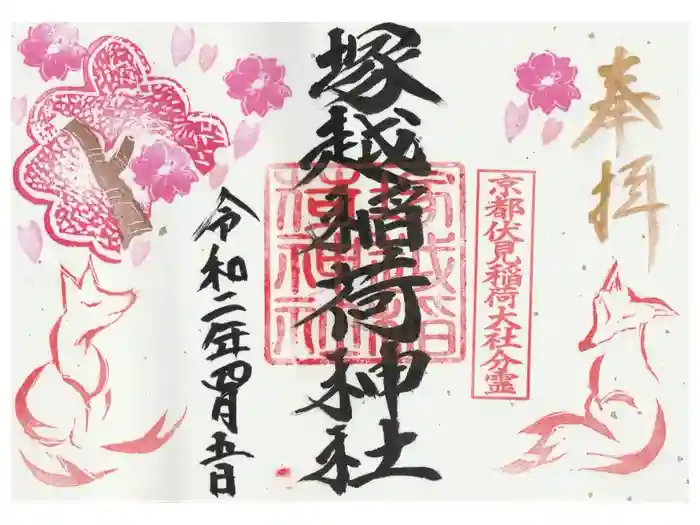 奉拝
京都伏見稲荷大社分霊
塚越稲荷神社
塚越稲
荷神社
令和二年四月五日